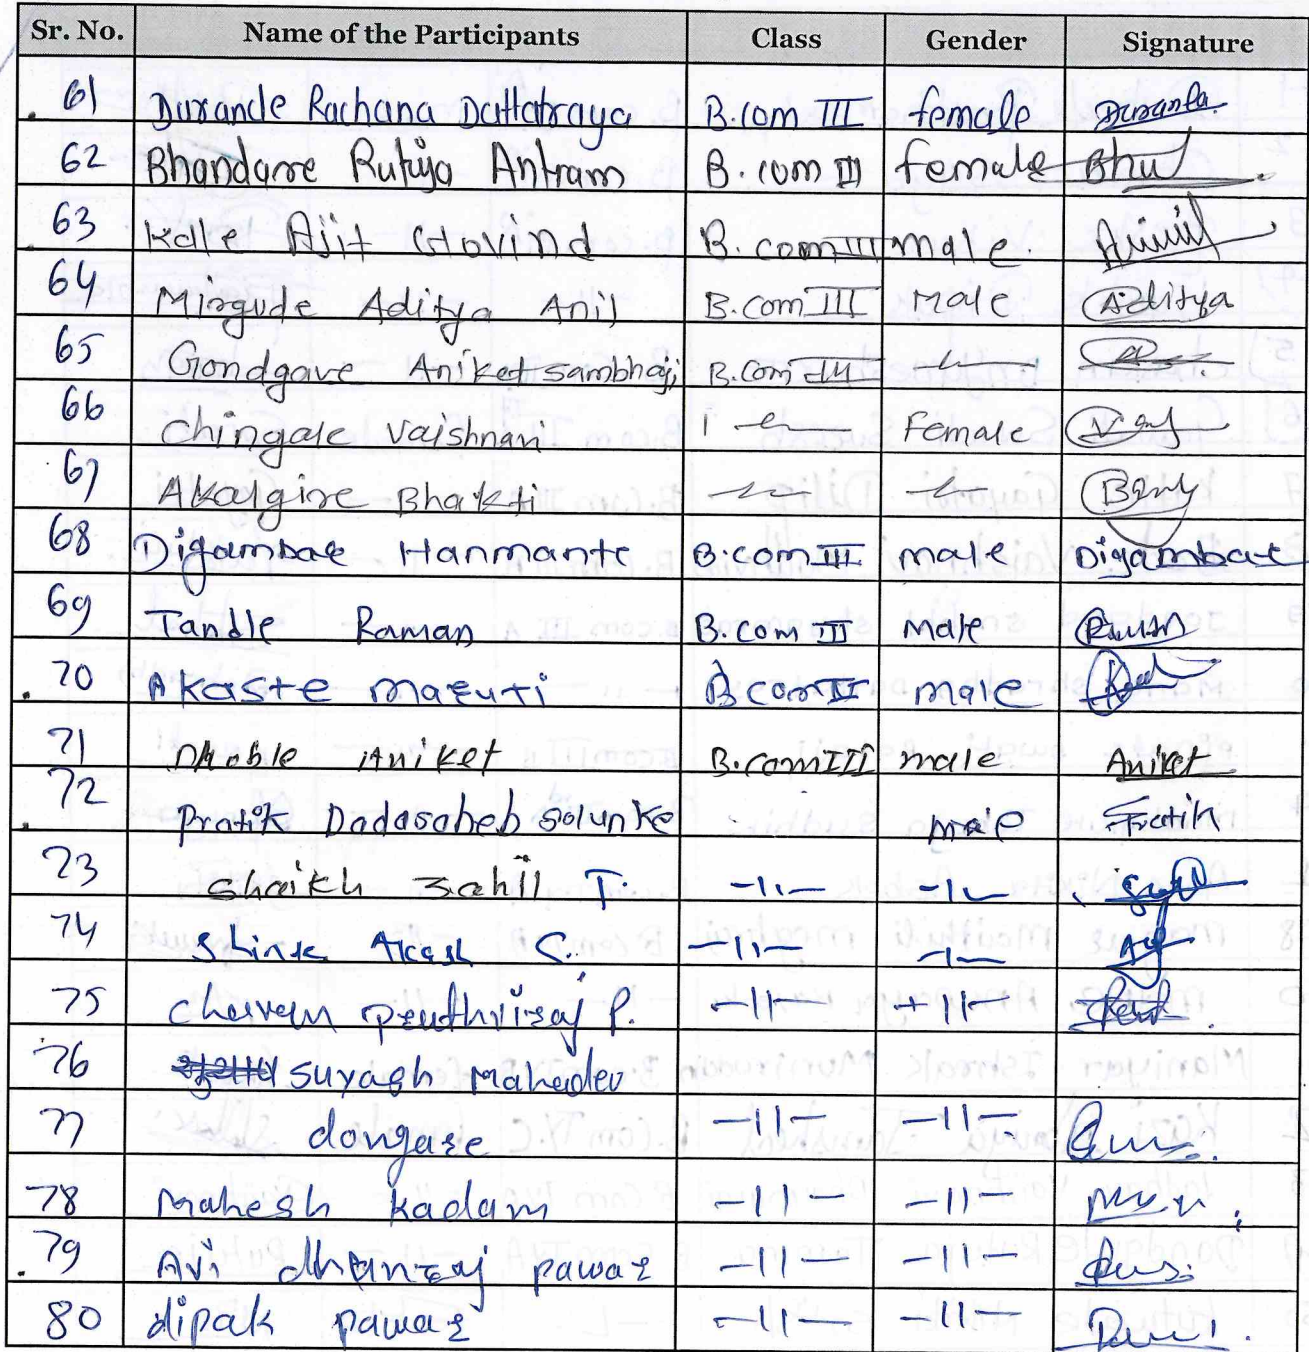 Sr. No. Name of the Participants Class Gender Signature
61 Durande Rachana Dattatraya B.com III female
62 Bhandare Rutuja Antram B.com III female
63 Kalle Ajit Govind B.com III male.
64 Mirgude Aditya Anil B.com III Male Aditya
65 Gondgave Aniket Sambhaji B.com III -11-
66 Chingale Vaishnavi -11- Female
67 Akalgire Bhakti -11- -11-
68 Digambar Hanmante B.com III male Digambar
69 Tandle Raman B.com III Male Raman
70 Akaste maruti B.com III male
71 Dhoble Aniket B.com III male Aniket
72 Pratik Dadasaheb Solunke male Pratik
73 Shaikh Sahil T. -11- -11-
74 Shinde Akash S. -11- -11-
75 Chavan Pruthviraj P. -11- -11-
76 Suyash Mahadev
77 dongare -11- -11-
78 Mahesh Kadam -11- -11-
79 Avi dhanraj pawar -11- -11-
80 dipak pawar -11- -11-